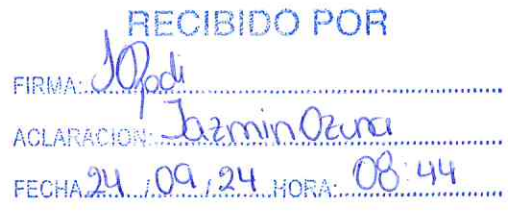 RECIBIDO POR
FIRMA:
ACLARACION: Jazmin Ozuna
FECHA 24 / 09 / 24 HORA: 08:44